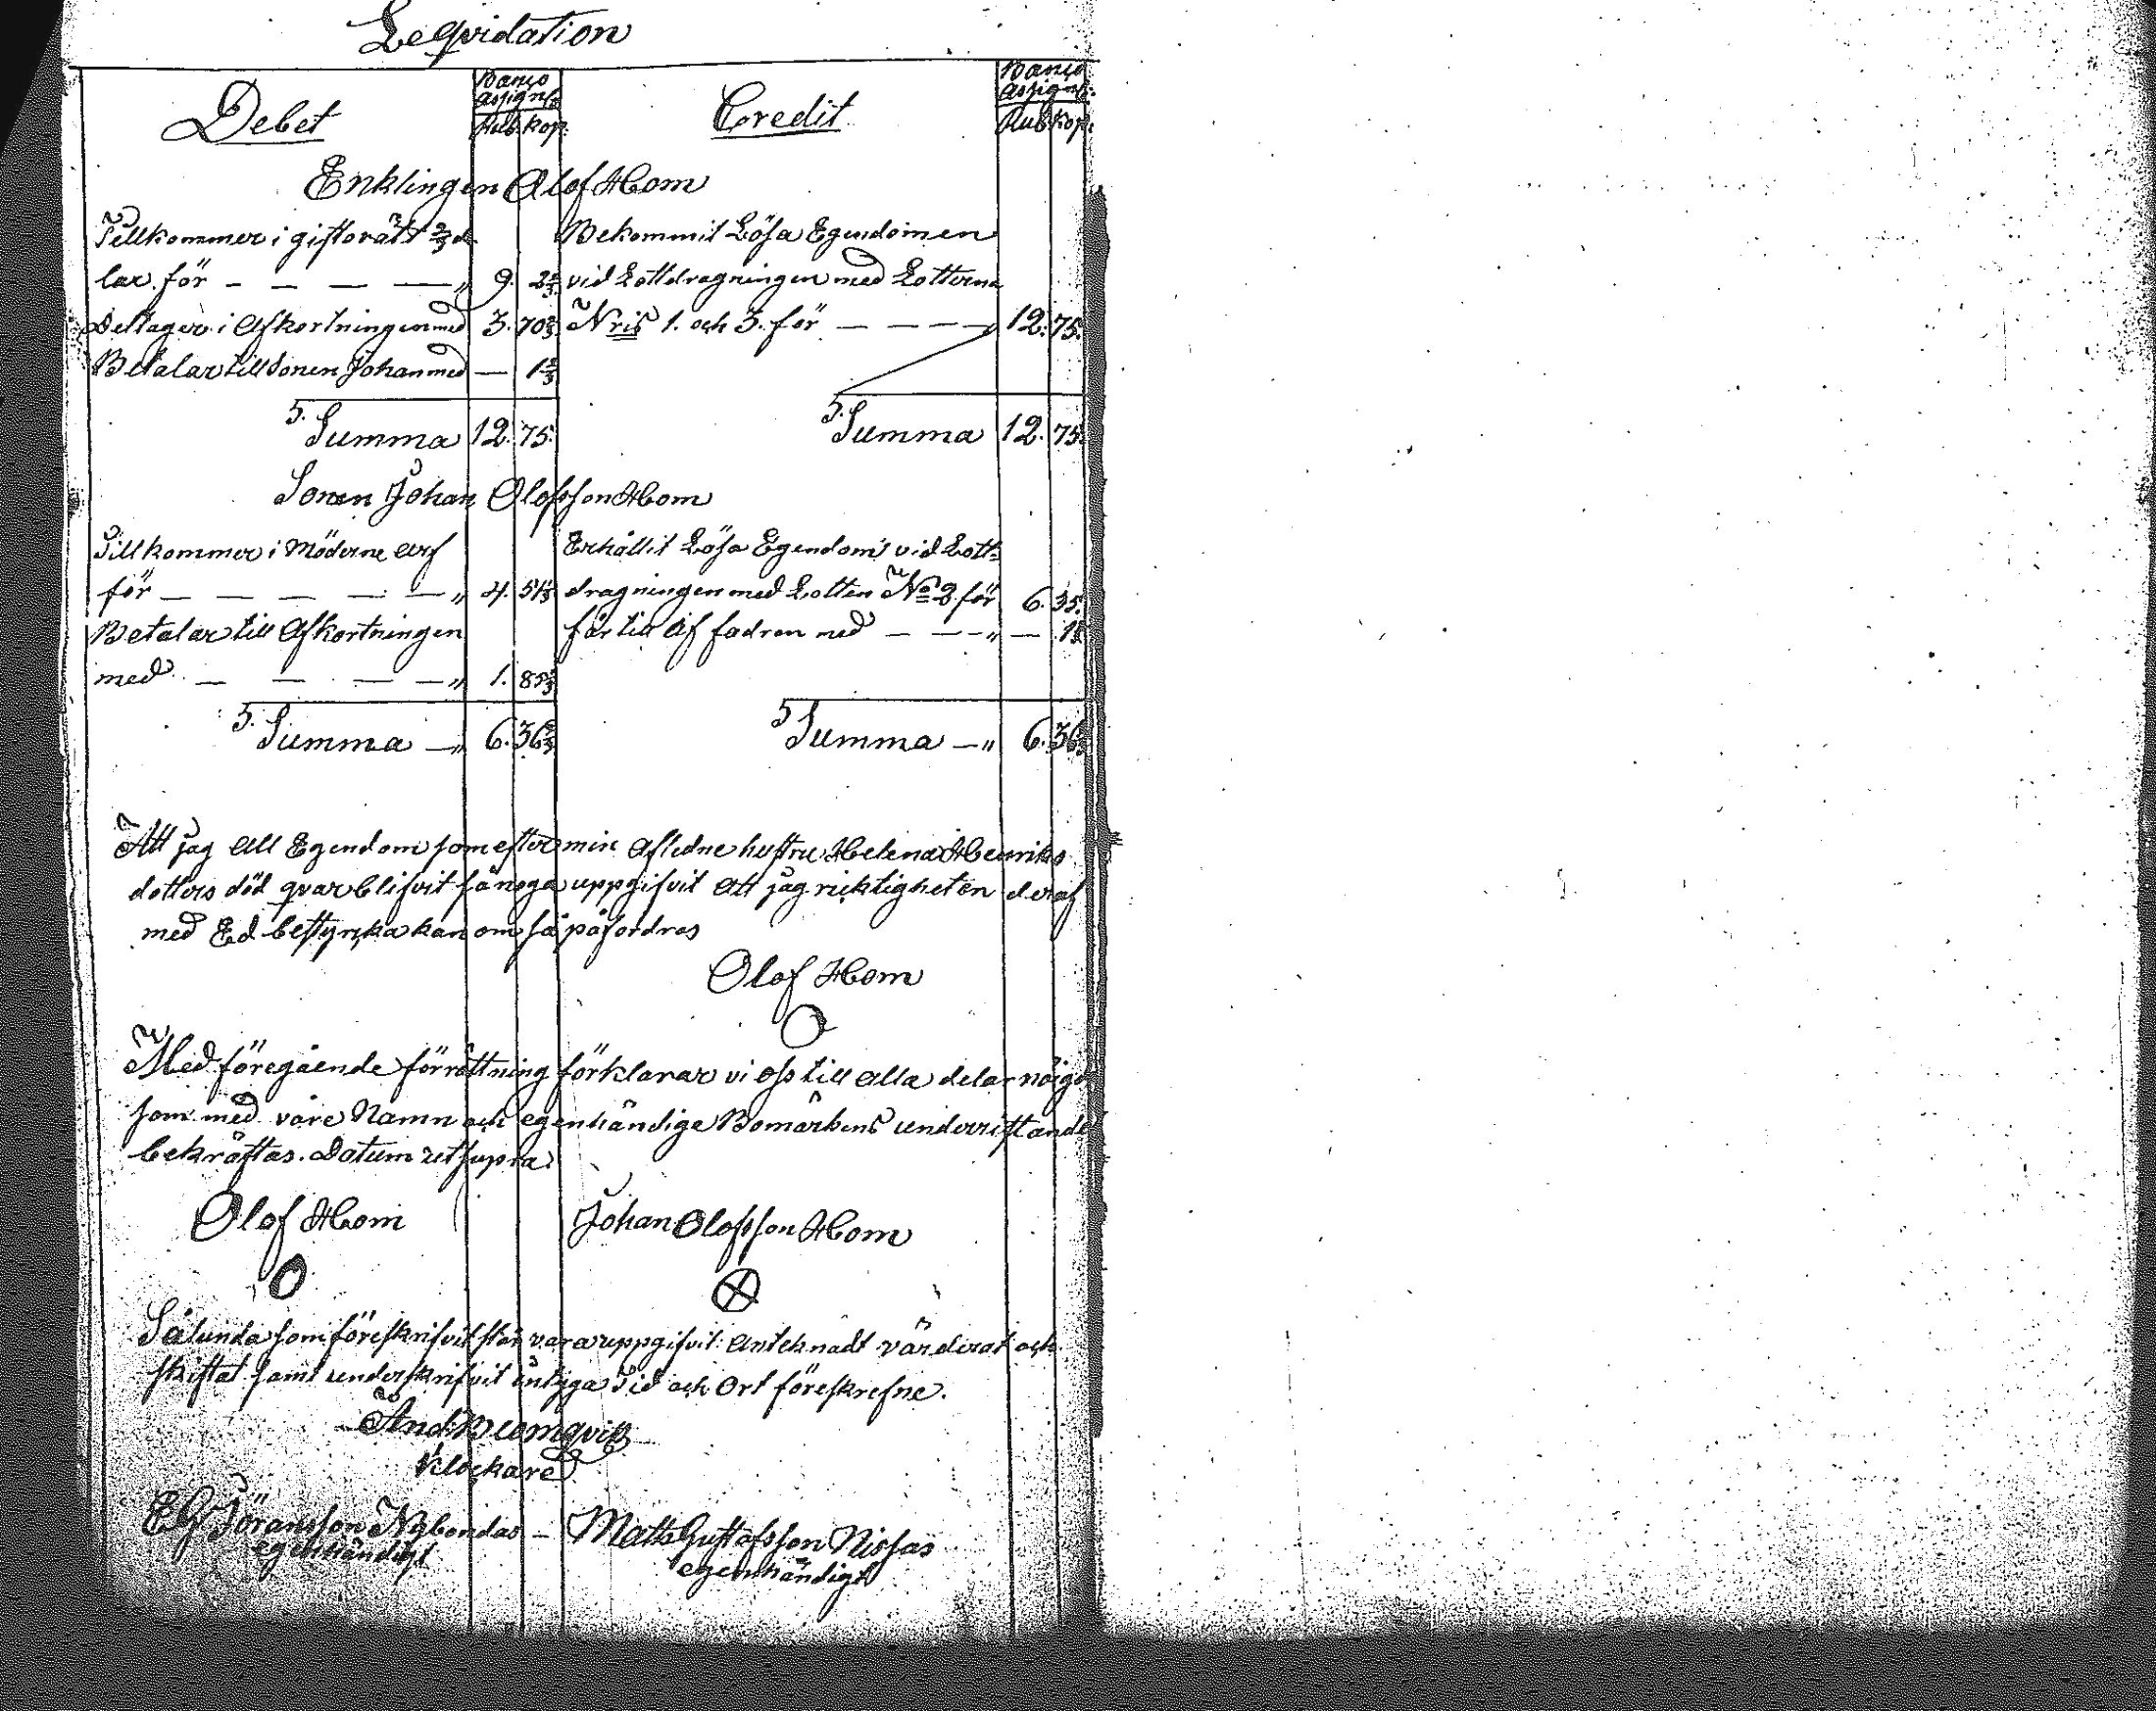 Leqvidation
Debet
Banco assign. Rub. kop.
Credit
Banco assign. Rub. kop.
Enklingen Olof Hom
Tillkommer i giftorätt 2/3 de
lar för — — — — " 9. 2 2/3
Deltager i Afkortningen med 3. 70 2/3
Betalar till Sonen Johan med — 1 2/3
S. Summa 12. 75.
Bekommit Lösa Egendomen
vid Lottdragningen med Lotterna
Nris 1. och 3. för — — — — " 12. 75.
S. Summa 12. 75.
Sonen Johan Olofsson Hom
Tillkommer i Möderne arf
för — — — — — " 4. 51 1/3
Betalar till Afkortningen
med — — — — " 1. 85 1/3
S. Summa — " 6. 36 2/3
Erhållit Lösa Egendom vid Lott-
dragningen med Lotten No 2 för 6. 35.
får till af fadren med — — — " — 1 2/3
S Summa — " 6. 36 2/3
Att jag all Egendom som efter min Aflidne hustru Helena Henriks
dotters död qvarblifvit så noga uppgifvit att jag riktigheten deraf
med Ed bestyrka kan om så påfordras
Olof Hom
Med föregående förrättning förklarar vi oss till alla delar nögd
som med våre Namn och egenhändige Bomärkens underrittande
bekräftas. Datum utsupra.
Olof Hom
Johan Olofsson Hom
Sålunda som föreskrifvit står vara uppgifvit antecknadt värderat och
skiftat samt underskrifvit intyga Tid och Ort föreskrefne.
And: Blomqvist
Klockare
E G Jöransson Nybondas — Matts Gustafsson Nissas
egenhändigt egenhändigt